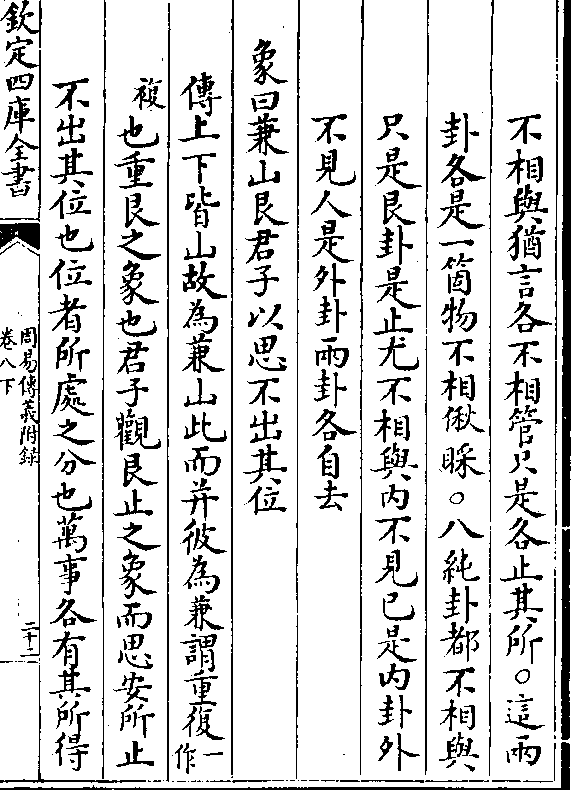 不相與猶言各不相管只是各止其所○這兩
卦各是一箇物不相偢睬○八純卦都不相與
只是艮卦是止尤不相與内不見已是内卦外
不見人是外卦兩卦各自去
象曰兼山艮君子以思不出其位
傳上下皆山故為兼山此而并彼為兼謂重復一作
複也重艮之象也君子觀艮止之象而思安所止
不出其位也位者所處之分也萬事各有其所得
欽定四庫全書
周易傳義附録
卷八下
二十二